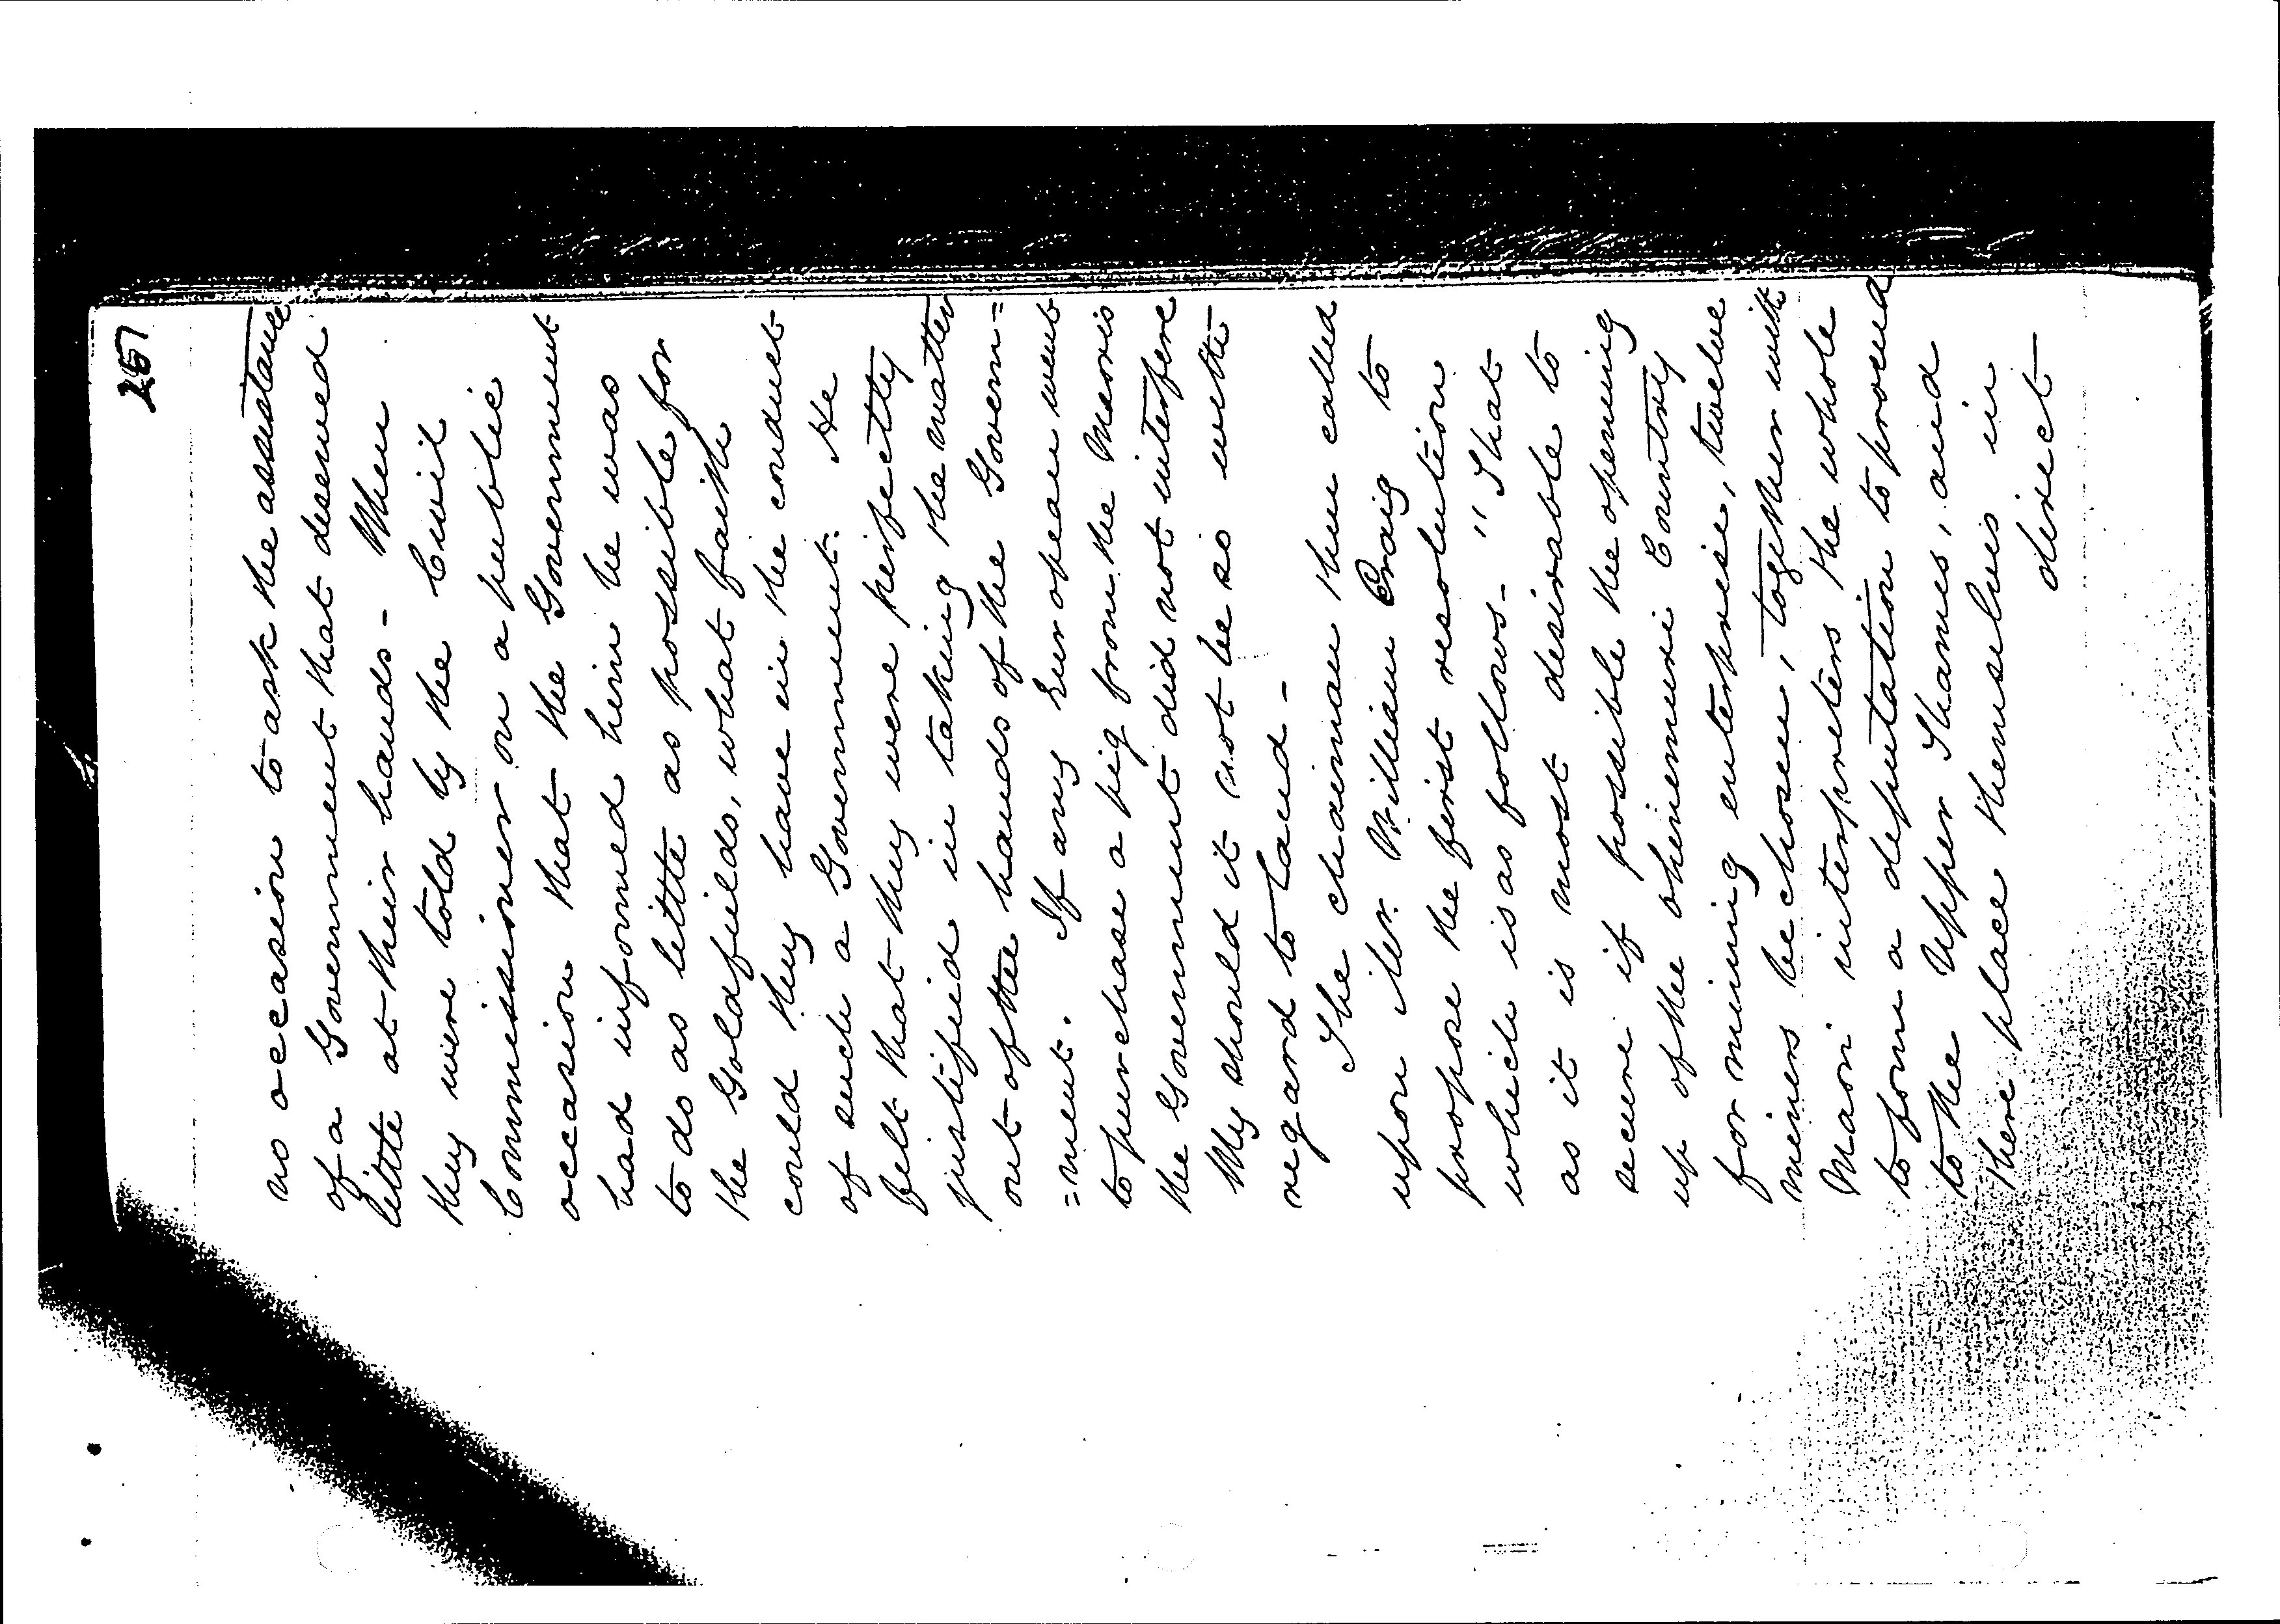 257
no occasion to ask the assistance
of a Government that deserved
little at their hands - When
they were told by the Civil
Commissioner on a public
occasion that the Government
had informed him he was
to do as little as possible for
the Goldfields, what faith
could they have in the conduct
of such a Government. He
felt that they were perfectly
justified in taking the matter
out of the hands of the Govern=
=ment. If any European went
to purchase a pig from the Maoris
the Government did not interfere
Why should it not be so with
regard to land -
The chairman then called
upon Mr. William Craig to
propose the first resolution
which is as follows - "That
as it is most desirable to
secure if possible the opening
up of the Ohinemuri Country
for mining enterprise, twelve
miners be chosen, together with
Maori interpreters the whole
to form a deputation to proceed
to the Upper Thames, and
there place themselves in
direct